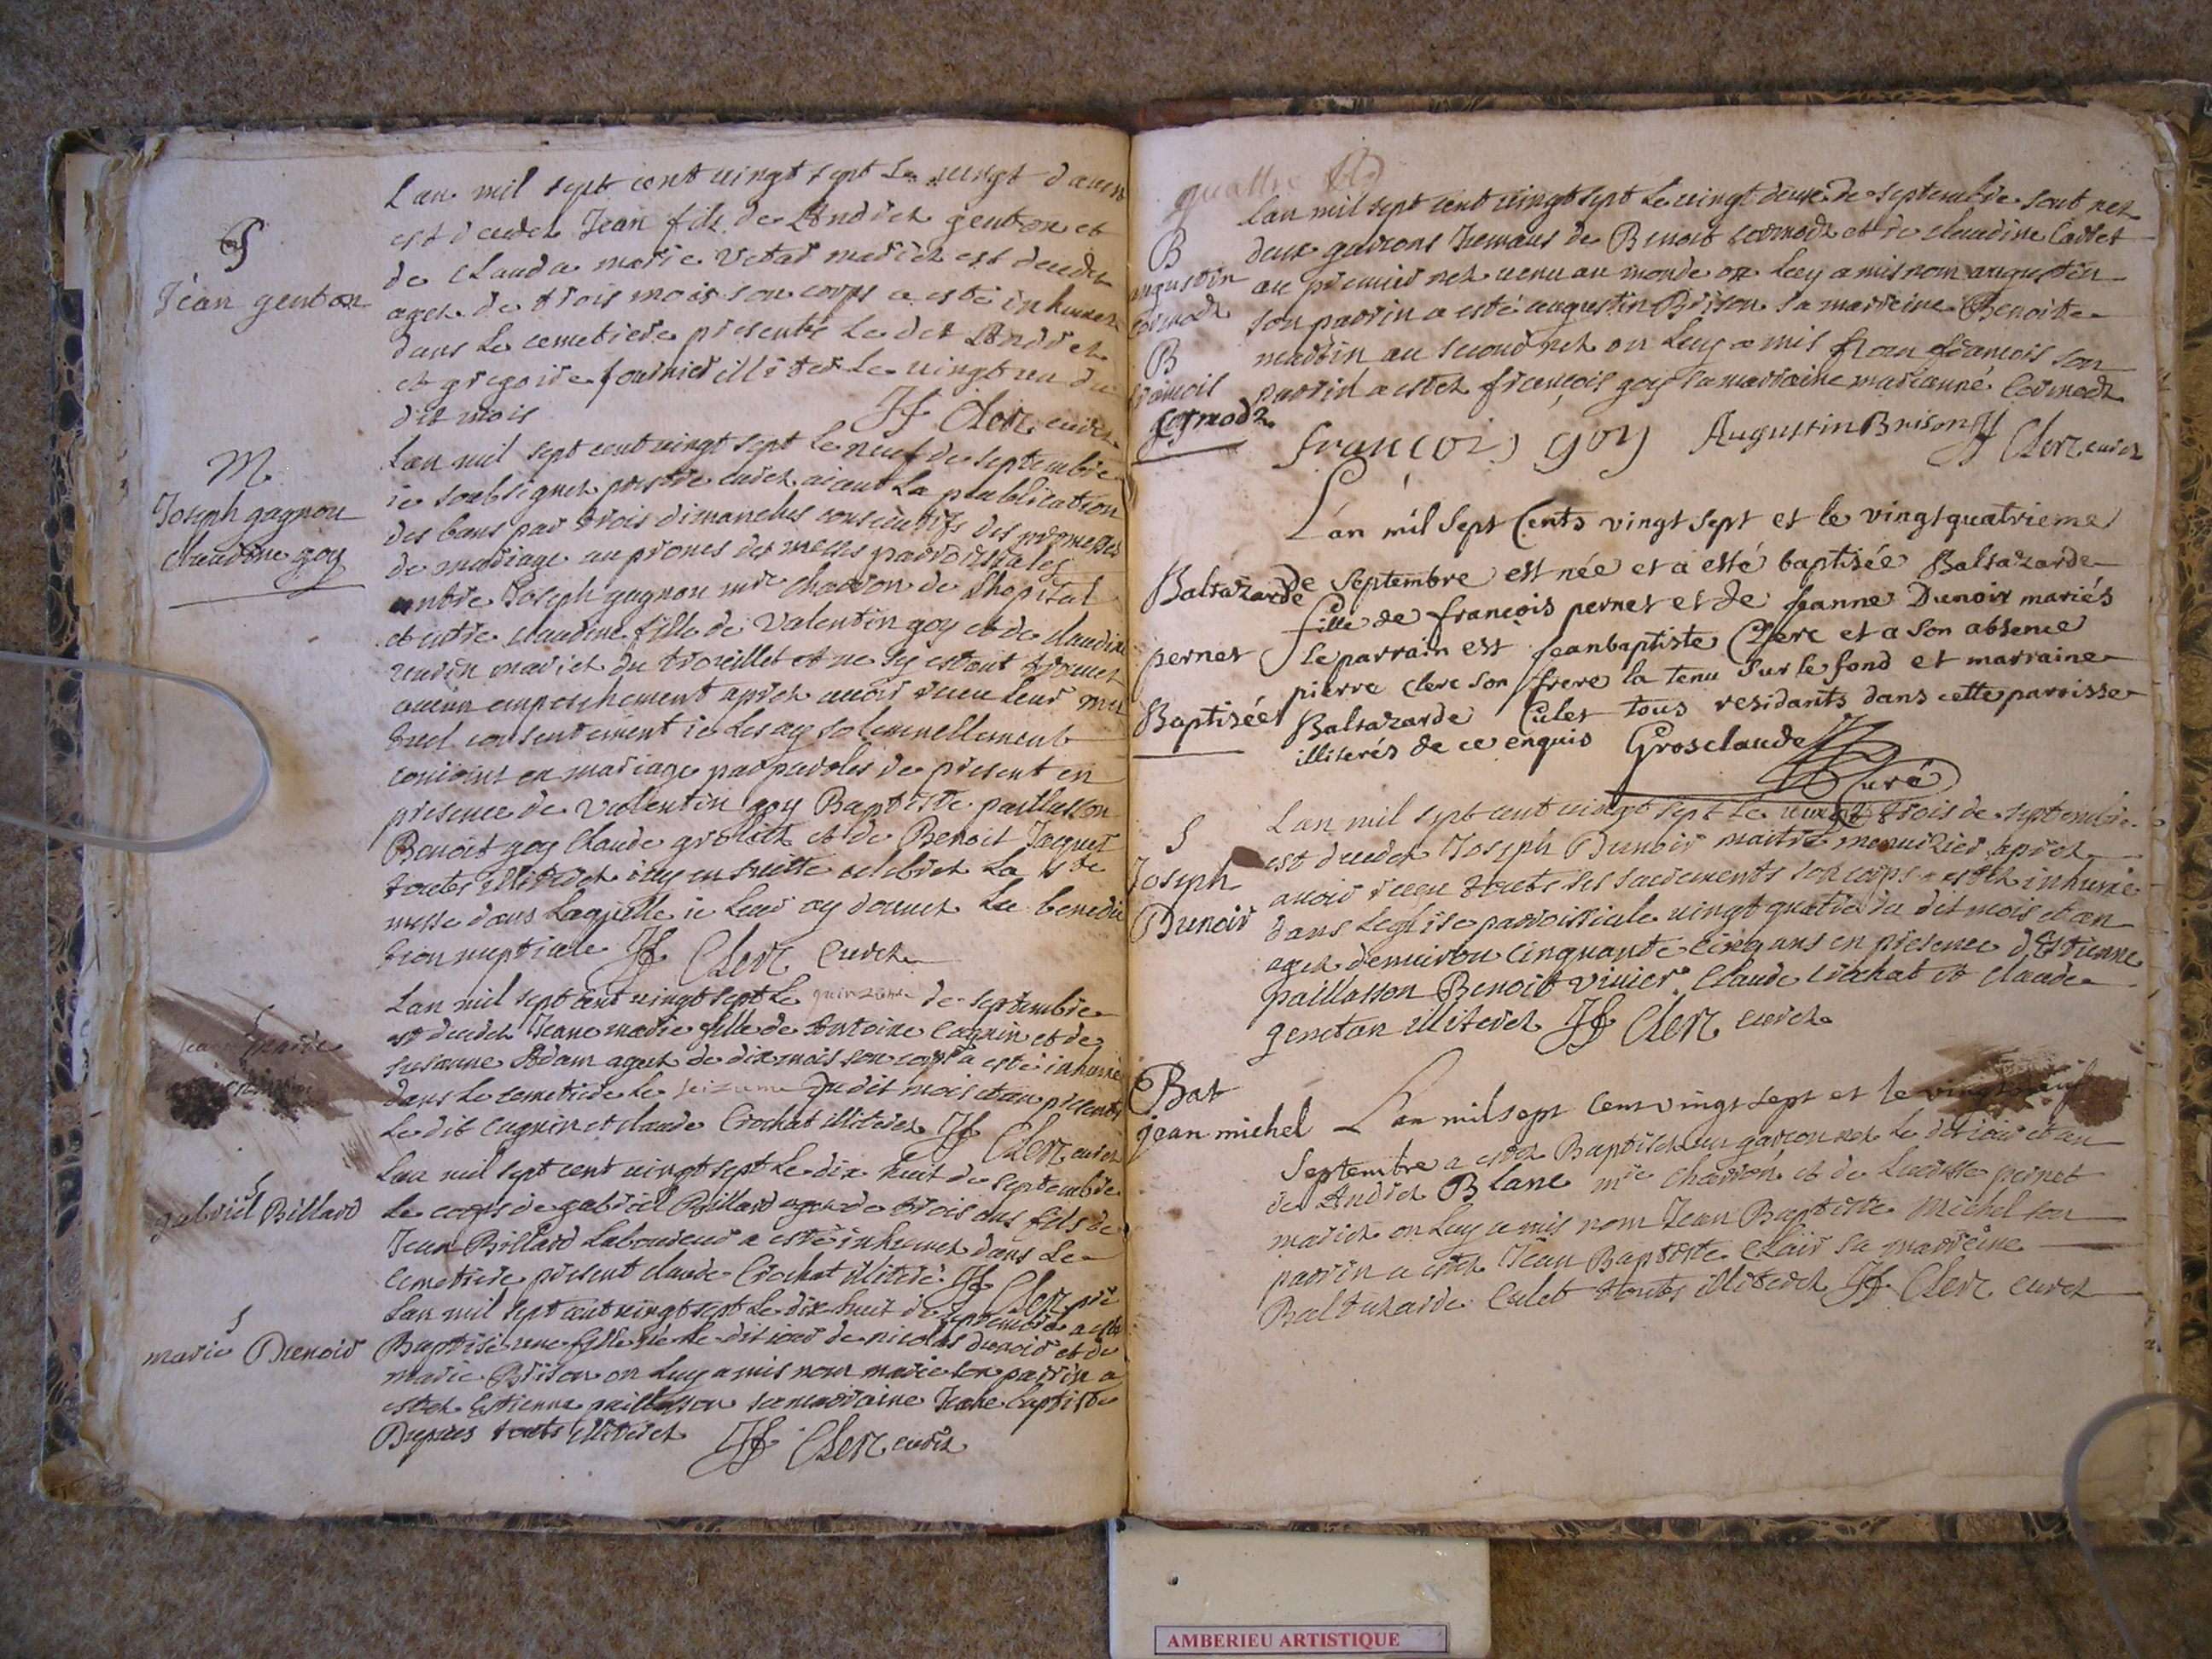 S
Jean genton
Lan mil sept cent vingt sept le vingt daoust
est decedez Jean fils de Andrez genton et
de Clauda marie mariez est decedez
agez de trois mois son corps a esté inhumez
dans le cemetiere presents le dit Andrez
et gregoire fournier illiterez le vingt un du
dit mois Clerc curez
M
Joseph gagnon
claudine goy
Lan mil sept cent vingt sept le neuf de septembre
ie soubsignez prestre curez aiant la publication
des bans par trois dimanches consecutifs des promesses
de mariage au prones des messes parroissiales
entre Joseph gagnon mre charron de Lhopital
et entre claudine fille de Valentin goy et de claudine
mariez du et ne sy estant trouvez
aucun empeschement aprez avoir receu leur mu
tuel consentement ie les ay solemnellement
conioint en mariage par paroles de present en
presence de Valentin goy Baptiste paillasson
Benoit goy Claude et de Benoit Jaquet
toutes illiterez iay en suitte celebrez la ste
messe dans laquelle ie leur ay donnez la benedic
tion nuptiale Clerc Curez
S
Lan mil sept cent vingt sept le quinzieme de septembre
est decedez Jeane marie fille de Antoine Cugnin et de
susanne Adam agez de dix mois son corps a esté inhumé
dans le cemetiere le seizieme du dit mois et an presents
le dit Cugnin et claude Crochat illiterez Clerc curez
S
gabriel Billard
Lan mil sept cent vingt sept le dix huit de septembre
le corps de gabriel Billard agez de trois ans fils de
Jean Billard laboureur a esté inhumez dans le
cemetiere present claude Crochat illiteré Clerc
marie Dunoir
Lan mil sept cent vingt sept le dix huit de septembre a esté
Baptisé une fille née le dit iour de nicolas dunoir et de
marie Brison on luy a mis nom marie son parrin a
estez Estienne paillasson sa marraine Jeane baptiste
Dupuis touts illiterez Clerc curez
quattre
B
augustin
cormodz
B
francois
Cormodz
Lan mil sept cent vingt sept le vingt deux de septembre sont nez
deux garcons Jumaus de Benoit cormodz et de claudine Carlet
au premier nez venu au monde on luy a mis nom augustin
son parrin a esté augustin Brison sa marreine Benoite
martin au second nez on luy a mis nom francois son
parrin a estez francois goy sa marraine marianne Cormodz
françois goy Augustin Brison Clerc curez
Baltazarde
pernet
Baptisée
L'an mil Sept Cents vingt sept et le vingtquatrieme
de Septembre est née et a esté baptisée Baltazarde
fille de françois pernet et de jeanne Dunoir mariés
le parrain est jeanbaptiste Clerc et a son absence
pierre clerc son frere la tenu sur le fond et marraine
Baltazarde Culet tous residants dans cette paroisse
illiterés de ce enquis Grosclaude
Curé
S
Joseph
Dunoir
Lan mil sept cent vingt sept le vingt trois de septembre
est decedez Joseph Dunoir maitre menuizier aprez
avoir receu touts ses sacrements son corps a estez inhumé
dans leglise parroissiale vingt quatre du dit mois et an
agez denviron cinquante cinq ans en presence d'Estienne
paillasson Benoit Vivier Claude Crochat et claude
genetan illiterez Clerc curez
Bat
jean michel
Lan mil sept Cent vingt sept et le vingt neuf
Septembre a estez Baptisez un garcon nez le dit iour et an
de Andrez Blanc mre charron et de pernet
mariez on luy a mis nom Jean Baptiste michel son
parrin a estez Jean Baptiste clair sa marreine
Baltazarde Culet toutes illiterez Clerc curez
AMBERIEU ARTISTIQUE